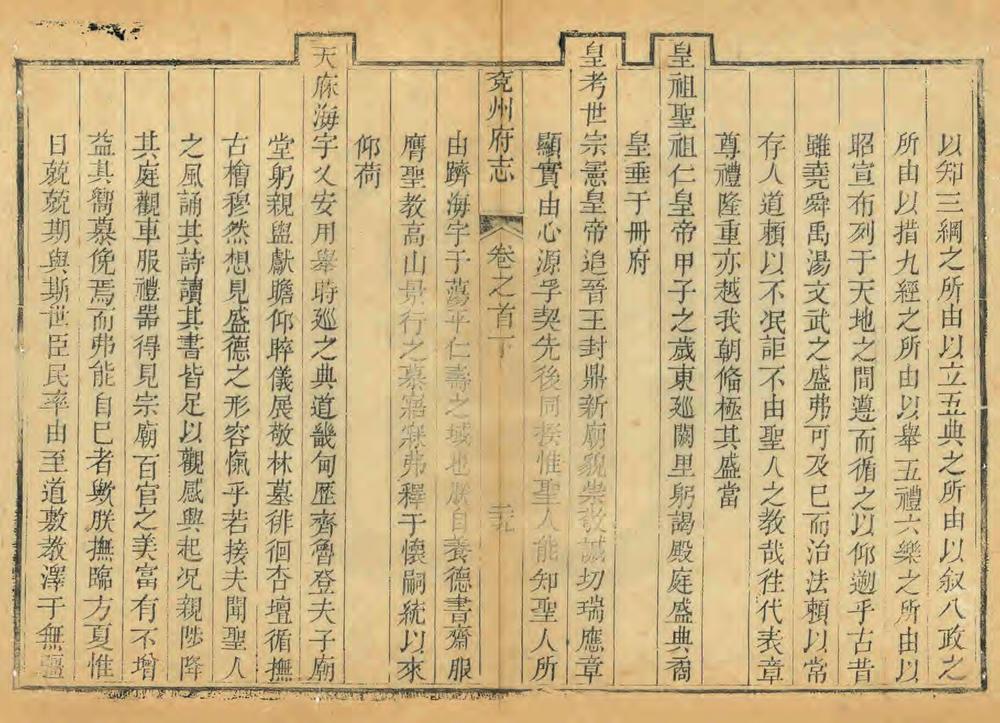 以知三綱之所由以立五典之所由以叙八政之
所由以措九經之所由以舉五禮六樂之所由以
昭宣布列于天地之間遵而循之以仰遡乎古昔
雖堯舜禹湯文武之盛弗可及已而治法賴以常
存人道賴以不泯詎不由聖人之教哉徃代表章
尊禮隆重亦越我朝俻極其盛當
皇祖聖祖仁皇帝甲子之歲東廵闕里躬謁殿庭盛典裔
皇垂于冊府
皇考世宗憲皇帝追晉王封鼎新廟貌崇敬誠切瑞應章
顯實由心源孚契先後同揆惟聖人能知聖人所
兖州府志 卷之首下 三九
由躋海宇于蕩平仁壽之域也朕自養德書齋服
膺聖教高山景行之慕寤寐弗釋于懷嗣統以來
仰荷
天庥海宇乂安用舉時廵之典道畿甸歷齊魯登夫子廟
堂躬親盥獻瞻仰睟儀展敬林墓徘徊杏壇循撫
古檜穆然想見盛德之形容愾乎若接夫聞聖人
之風誦其詩讀其書皆足以觀感興起况親陟降
其庭觀車服禮器得見宗廟百官之美富有不增
益其嚮慕俛焉而弗能自已者歟朕撫臨方夏惟
日兢兢期與斯世臣民率由至道敷教澤于無疆